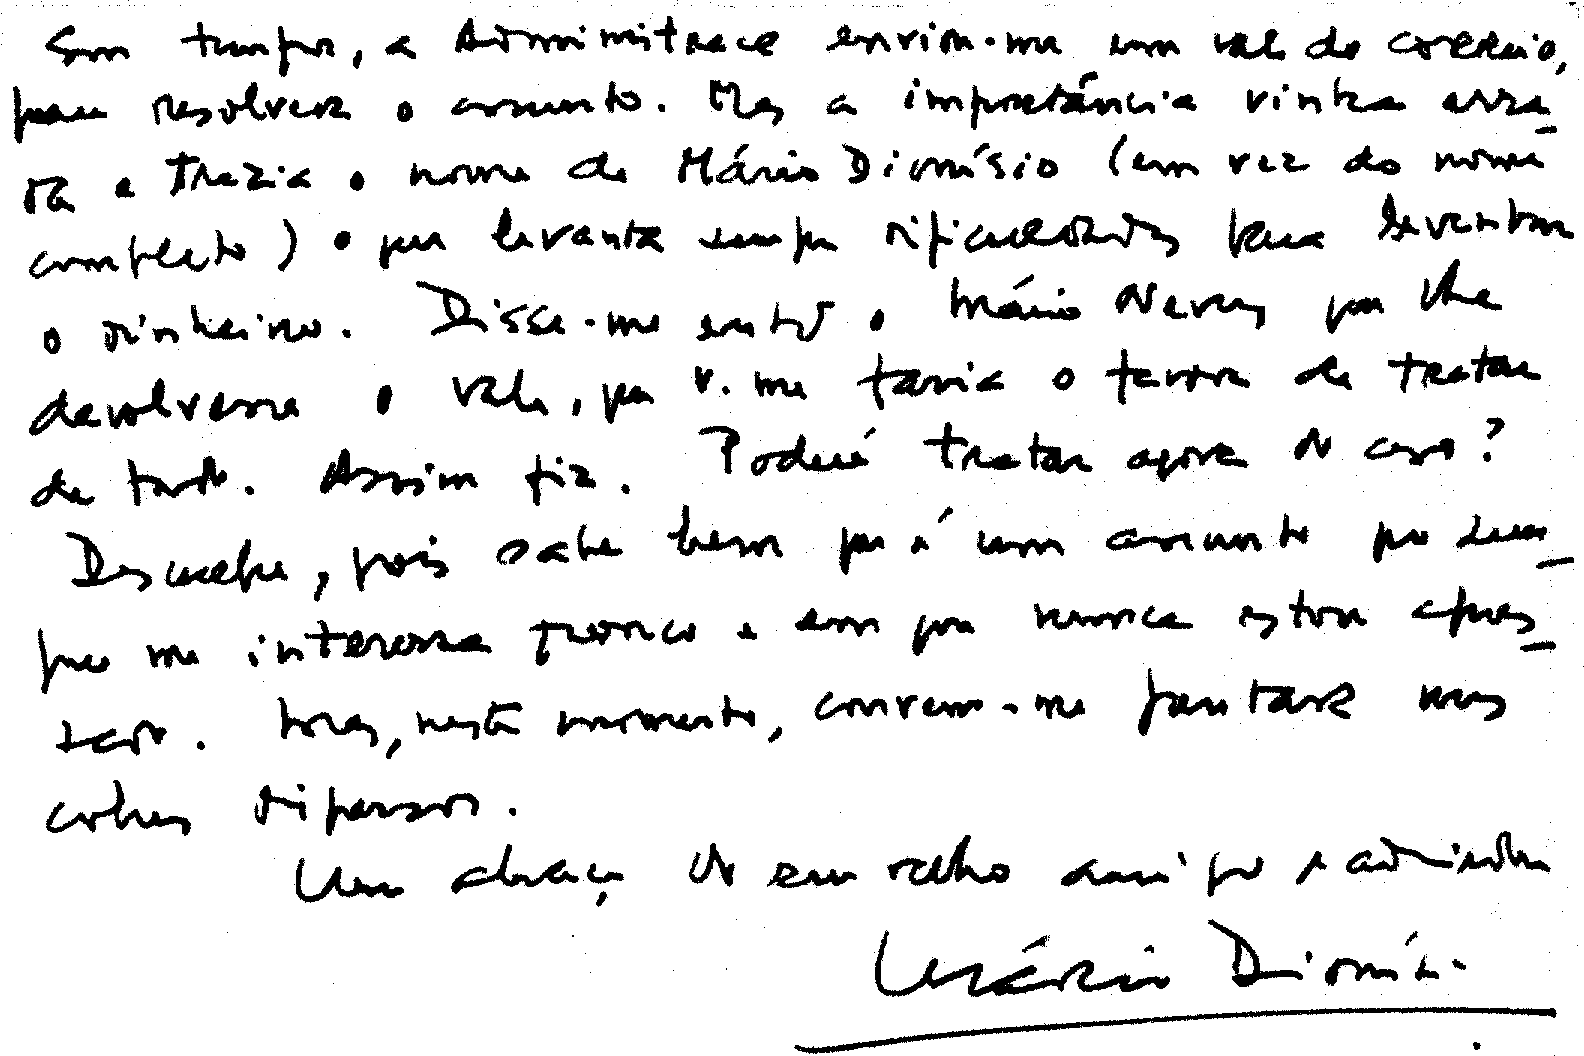 Em tempos, a Administração enviou-me um vale do correio,
para resolver o assunto. Mas a importância vinha erra-
da e trazia o nome de Mário Dionísio (em vez do nome
completo) o que levanta sempre dificuldades para levantar
o dinheiro. Disse-me então o Mário Neves que lhe
devolvesse o vale, que v. me faria o favor de tratar
de tudo. Assim fiz. Poderá tratar agora do caso?
Desculpe, pois sabe bem que é um assunto que sem-
pre me interessa pouco e em que nunca estou apres-
sado. Mas, neste momento, convem-me juntar uns
cobres dispersos.
Um abraço do seu velho amigo e admirador
Mário Dionísio